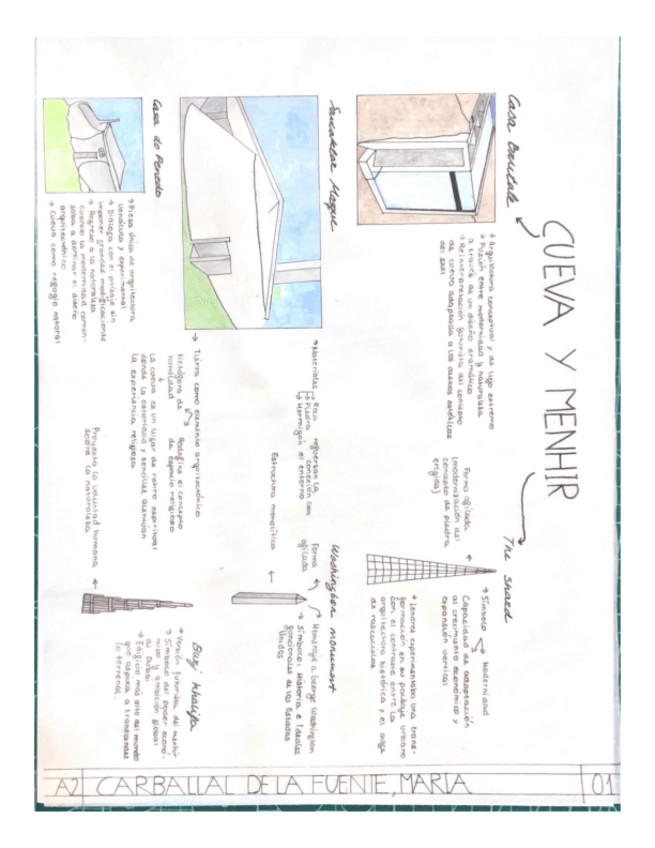 CUEVA Y MENHIR
Casa Brutale
→ Arquitectura conceptual y de lujo extremo
→ Fusión entre modernidad y naturaleza
a través de un diseño dramático
→ Reinterpretación futurista del concepto
de cueva adaptada a los deseos estéticos
del SXXI
Sancaklar Mosque
→ Materiales
Roca
→ Piedra
→ Hormigón
refuerzan la
conexión con
el entorno
→ Tierra como elemento arquitectónico
Metáfora de
humildad
Redefine el concepto
de espacio religioso
La cueva es un lugar de retiro espiritual
donde la oscuridad y sencillez acentúan
la experiencia religiosa
Casa do Penedo
→ Pieza única de arquitectura
vernácula y experimental
→ Dialoga con el paisaje sin
imponer grandes modificaciones
→ Regreso a la naturaleza
cuando la modernidad comen-
zaba a dominar el diseño
arquitectónico
→ Cueva como refugio natural
The Shard
Forma afilada
(modernización del
concepto de piedra
erigida)
→ Símbolo
Modernidad
Capacidad de adaptación
al crecimiento económico y
expansión vertical
→ Londres experimentaba una trans-
formación en su paisaje urbano
con el contraste entre la
arquitectura histórica y el auge
de rascacielos
Washington monument
Forma
afilada
Estructura monolítica
Homenaje a George Washington
→ Símbolo: Historia e Ideales
funcionales de los Estados
Unidos
Burj Khalifa
Proyecta la voluntad humana
sobre la naturaleza
→ Versión futurista del menhir
→ Símbolo del poder econó-
mico y ambición global
de Dubai
→ Edificio más alto del mundo
que aspira a trascender
lo terrenal
A2 CARBALLAL DE LA FUENTE, MARIA 01